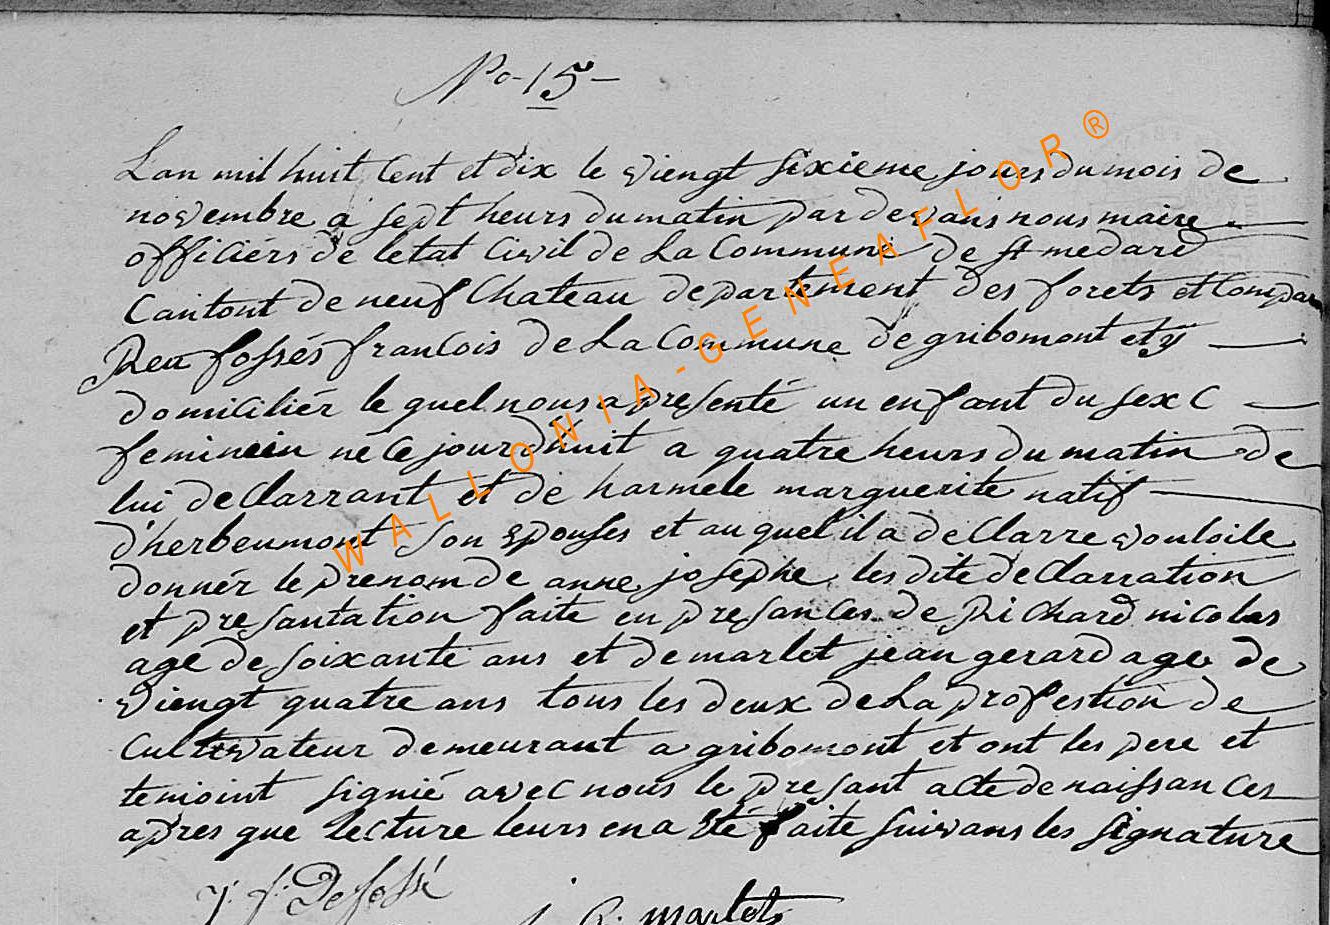 No 15
Lan mil huit Cent et dix le viengt sixieme jours du mois de
novembre a sept heurs du matin par devans nous maire
officiérs de letat Civil de La Commune de St medard
Cantont de neuf Chateau departement des forets et Compar
Reu fossés francois de La Commune de gribomont et y
domiciliér le quel nous a presenté un enfant du sexe
feminein né ce jourdhuit a quatre heurs du matin de
lui declarrant et de harmele marguerite natif
d'herbeumont son epouses et au quel il a declarre vouloile
donnér le prenom de anne josephe les dite declarration
et presantation faite en presances de Richard nicolas
age de soixante ans et de marlet jean gerard age de
viengt quatre ans tous les deux de La profestion de
Cultivateur demeurant a gribomont et ont les pere et
temoint signié avec nous le presant acte de naissances
apres que lecture leurs en a été faite suivans les signature
j. f. Defossé
j. G. marlet
WALLONIA-GENEAFLOR®